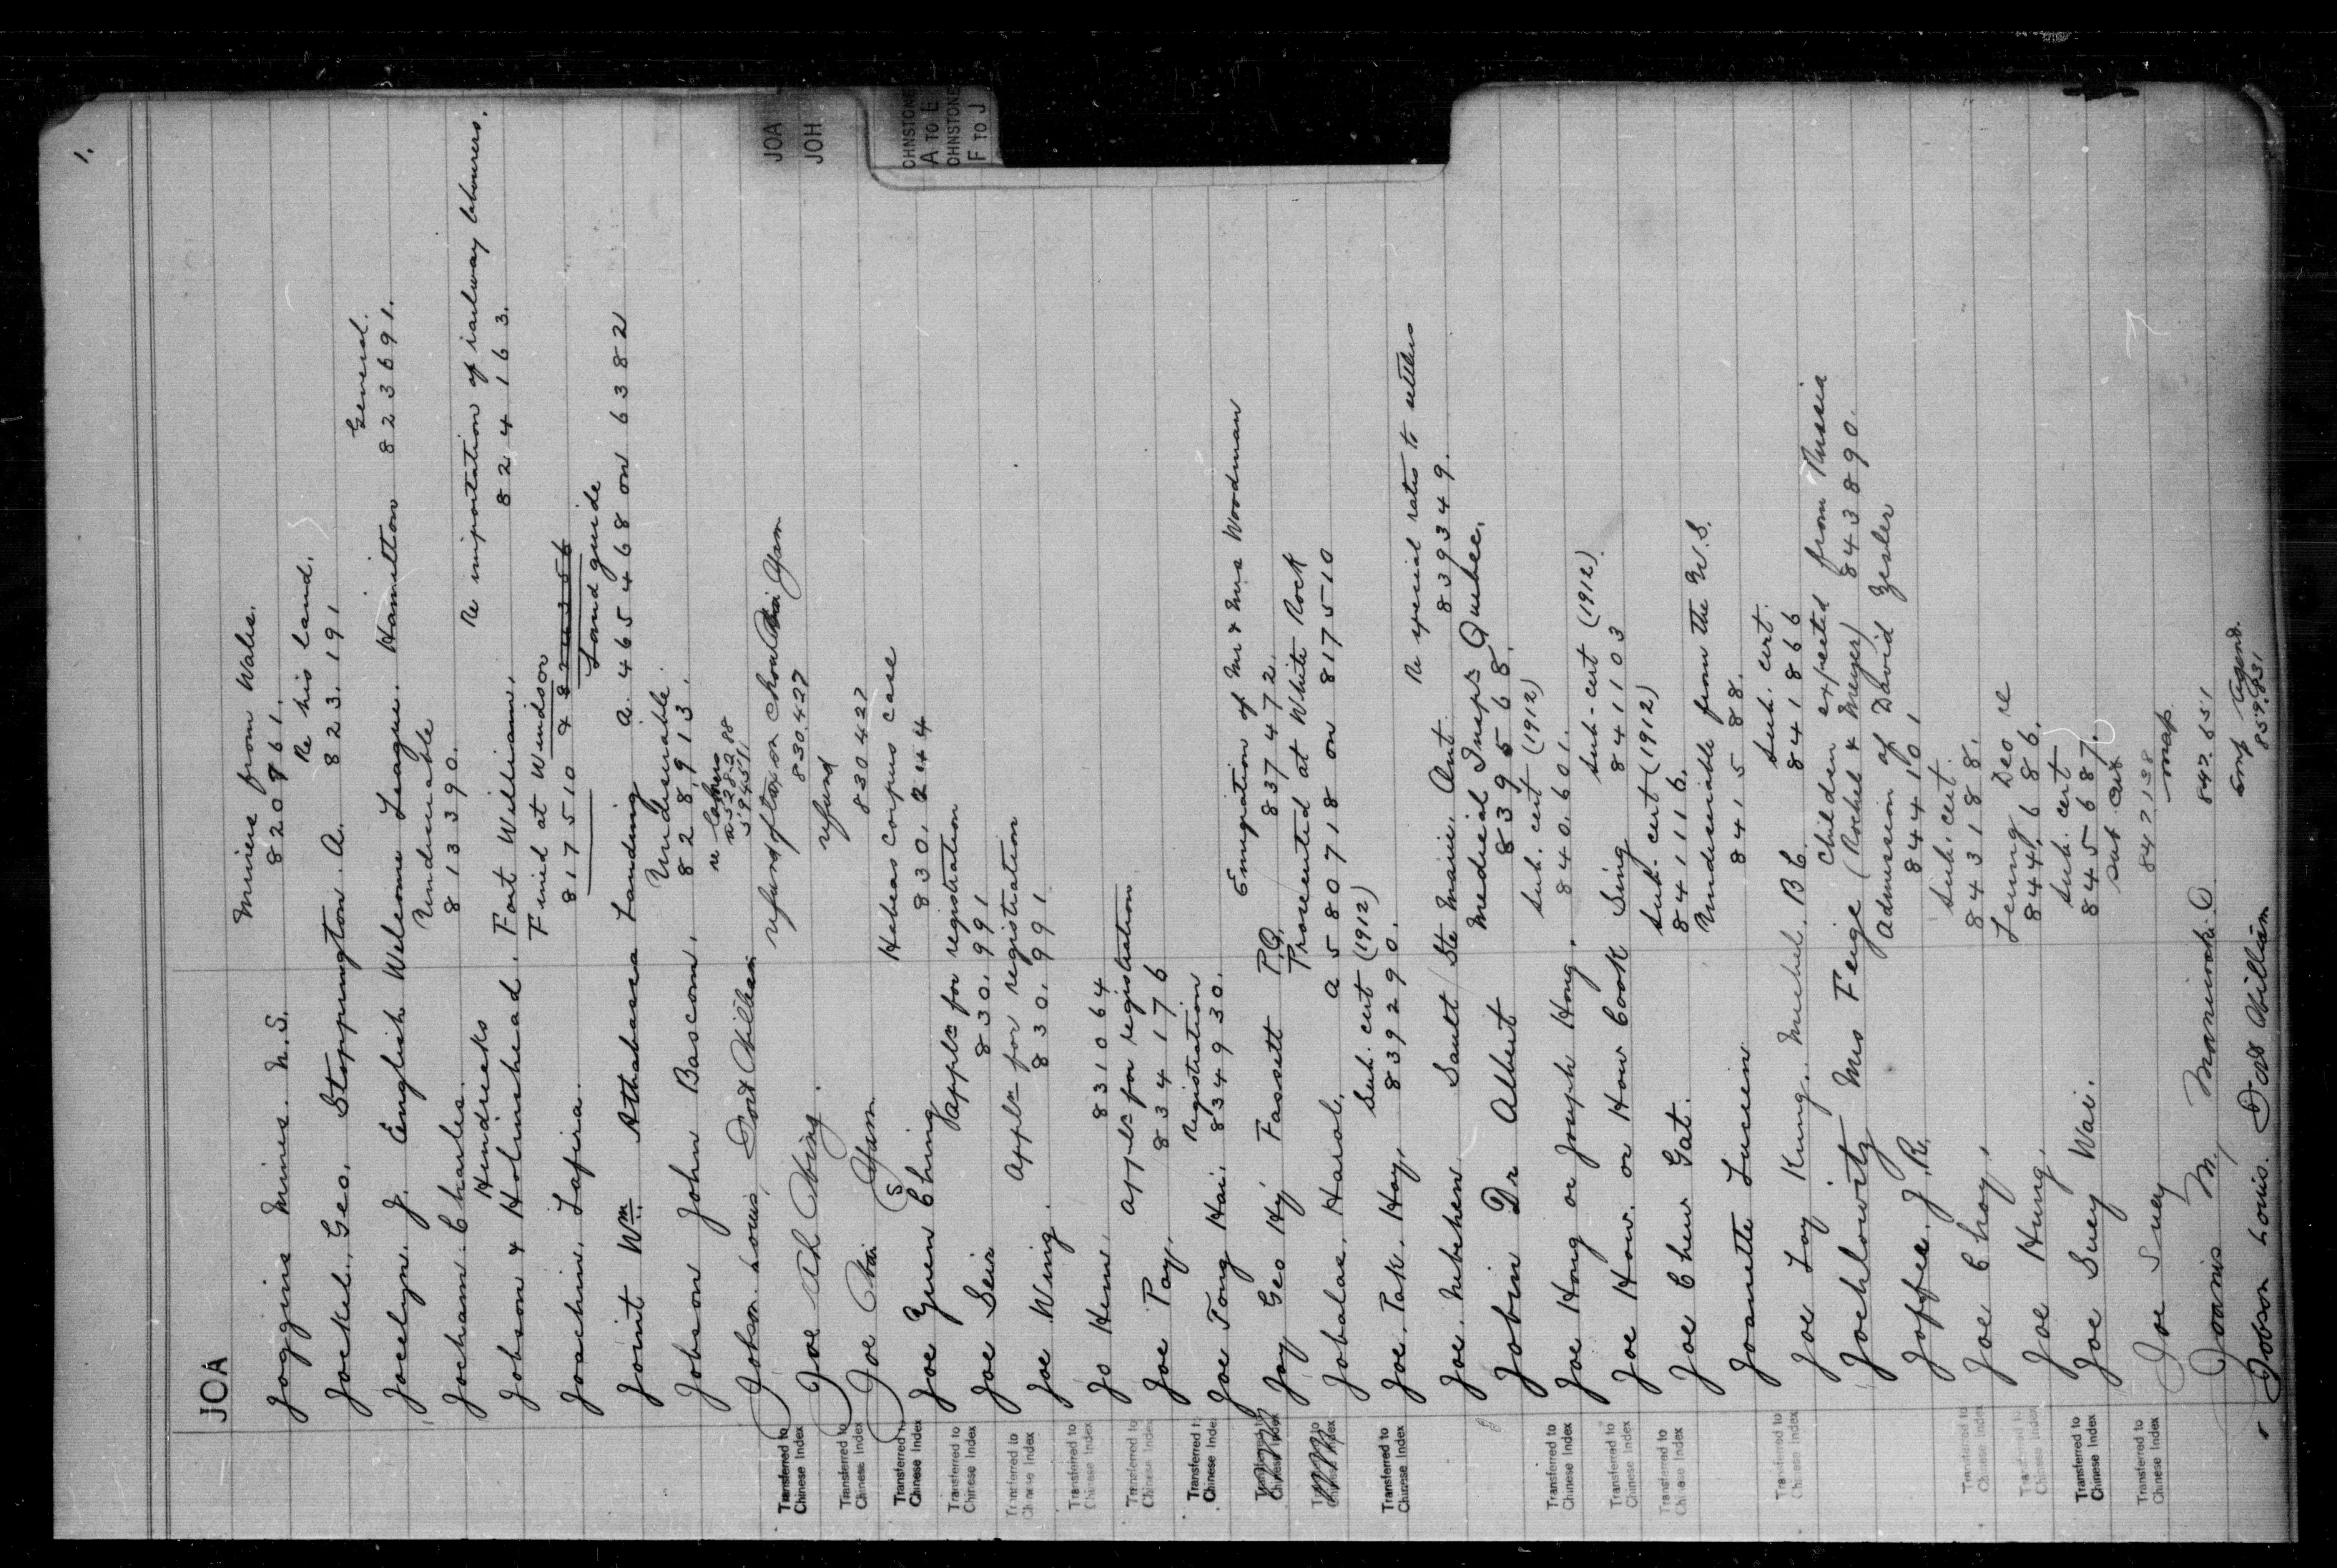 1.
JOA
JOA
JOH
OHNSTONE
A TO E
OHNSTONE
F TO J
Miners from Wales.
Joggins Mines. N.S. 820861.
Re his land.
Jockel, Geo. Stoppington. A. 823.191
General.
Jocelyn. J. English Welcome League. Hamilton 823691.
Undesirable
Jocham. Charles. 813390.
Hendricks Re importation of railway labourers.
Jobson & Holinshead. Fort William. 824163.
Fined at Windsor
Joachin. Lafira. 817510
Land guide
Joint Wm. Athabasca Landing a. 4654468 on 6382
Undesirable.
Jobson John Bascom. 828,913.
Jobson. Louis, Fort William
refund of tax on
Transferred to
Chinese Index
Joe Ah Wing. 830.427
refund
Transferred to
Chinese Index
Joe Yam 830427
Habeas Corpus case
Transferred to
Chinese Index
Joe Guen Ching 830,244
Appln for registration
Transferred to
Chinese Index
Joe Seir 830,991
Appln for registration
Transferred to
Chinese Index
Joe Wing. 830,991
Transferred to
Chinese Index
Jo Henn. 831064
Appln for registration
Transferred to
Chinese Index
Joe Pay. 834176
Registration
Transferred to
Chinese Index
Joe Tong Hai. 834930.
Emigration of Mr & Mrs Woodman
Joy Geo Hy Fassett P.Q. 837472.
Prosecuted at White Rock
Jobalas. Hairol. a 580718 on 817510
Sub. cert (1912)
Transferred to
Chinese Index
Joe. Pak. Hay. 839290.
Re special rates to settlers
Joe. Mebshew Sault Ste Marie. Ont. 839349.
Medical Inspr Quebec.
Jobin Dr Albert 839568.
Sub. cert (1912)
Transferred to
Chinese Index
Joe Hong or Joseph Hong. 840.601.
Sub-cert (1912)
Transferred to
Chinese Index
Joe How. or How Cook Sing 841103
Sub. cert (1912)
Transferred to
Chinese Index
Joe Chew Gat. 841116.
Undesirable from the U.S.
Joanette Lucien 841588.
Sub. cert.
Transferred to
Chinese Index
Joe Loy Kung. Michel. B.C. 841866
Children expected from Russia
Jochlowitz Mrs Feige (Rochel & Meyer) 843890.
Admission of David Zesler
Joffee. J. R. 844101
Sub. cert.
Transferred to
Chinese Index
Joe Choy. 843188.
Leung Deo re
Transferred to
Chinese Index
Joe Hung. 844,686.
Sub. cert
Transferred to
Chinese Index
Joe Suey Wai. 845687.
Sub cert
Transferred to
Chinese Index
Joe Suey 847138
map
Joanis M, Maniwaki. Q 847.651
Emp agend.
Jobson Louis. Fort William 859.931